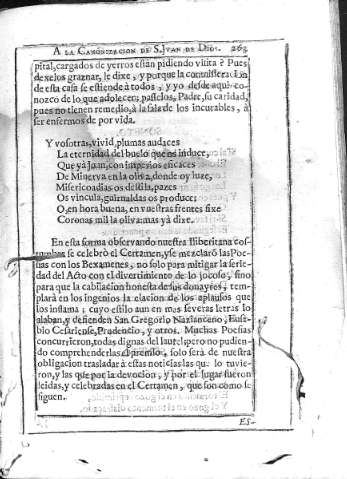 A LA CANONIZACION DE S. JVAN DE DIOS. 263
pital, cargados de yerros estàn pidiendo visita? Pues
dexelos graznar, le dixe, y porque la comissera
de esta casa se estiende à todos, y yo desde aqui co-
nozco de lo que adolecen; passelos, Padre, su caridad,
pues no tienen remedio, à la sala de los incurables, à
ser enfermos de por vida.
Y vosotras, vivid, plumas audaces
La eternidad del buelo que os induce,
Que yà Juan, con impeños eficaces
De Minerva en la oliva, donde oy luze,
Misericordias os destila, pazes
Os vincula, guirnaldas os produce;
O, en hora buena, en vuestras frentes fixe
Coronas mil la oliva: mas yà dixe.
En esta forma observando nuestra Iliberitana cos-
tumbre se celebrò el Certamen, y se mezclarõ las Poe-
sias con los Bexamenes, no solo para mitigar la serie-
dad del Acto con el divertimiento de lo jocoso, sino
para que la cabilacion honesta de sus donayres, tem-
plarà en los ingenios la elacion de los aplausos que
los inflama; cuyo estilo aun en mas severas letras lo
alaban, y defienden San Gregorio Nazianceno, Euse-
bio Cesariense, Prudencio, y otros. Muchas Poesias
concurrieron, todas dignas del laurel; pero no pudien-
do comprehenderlas el premio, solo serà de nuestra
obligacion trasladar à estas noticias las que lo tuvie-
ron, y las que por la devocion, y por el lugar fueron
leidas, y celebradas en el Certamen, que son como se
siguen.
ES-